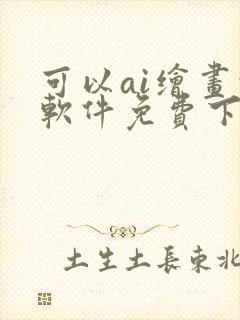 可以ai繪畫
軟件免費下
土生土長東北